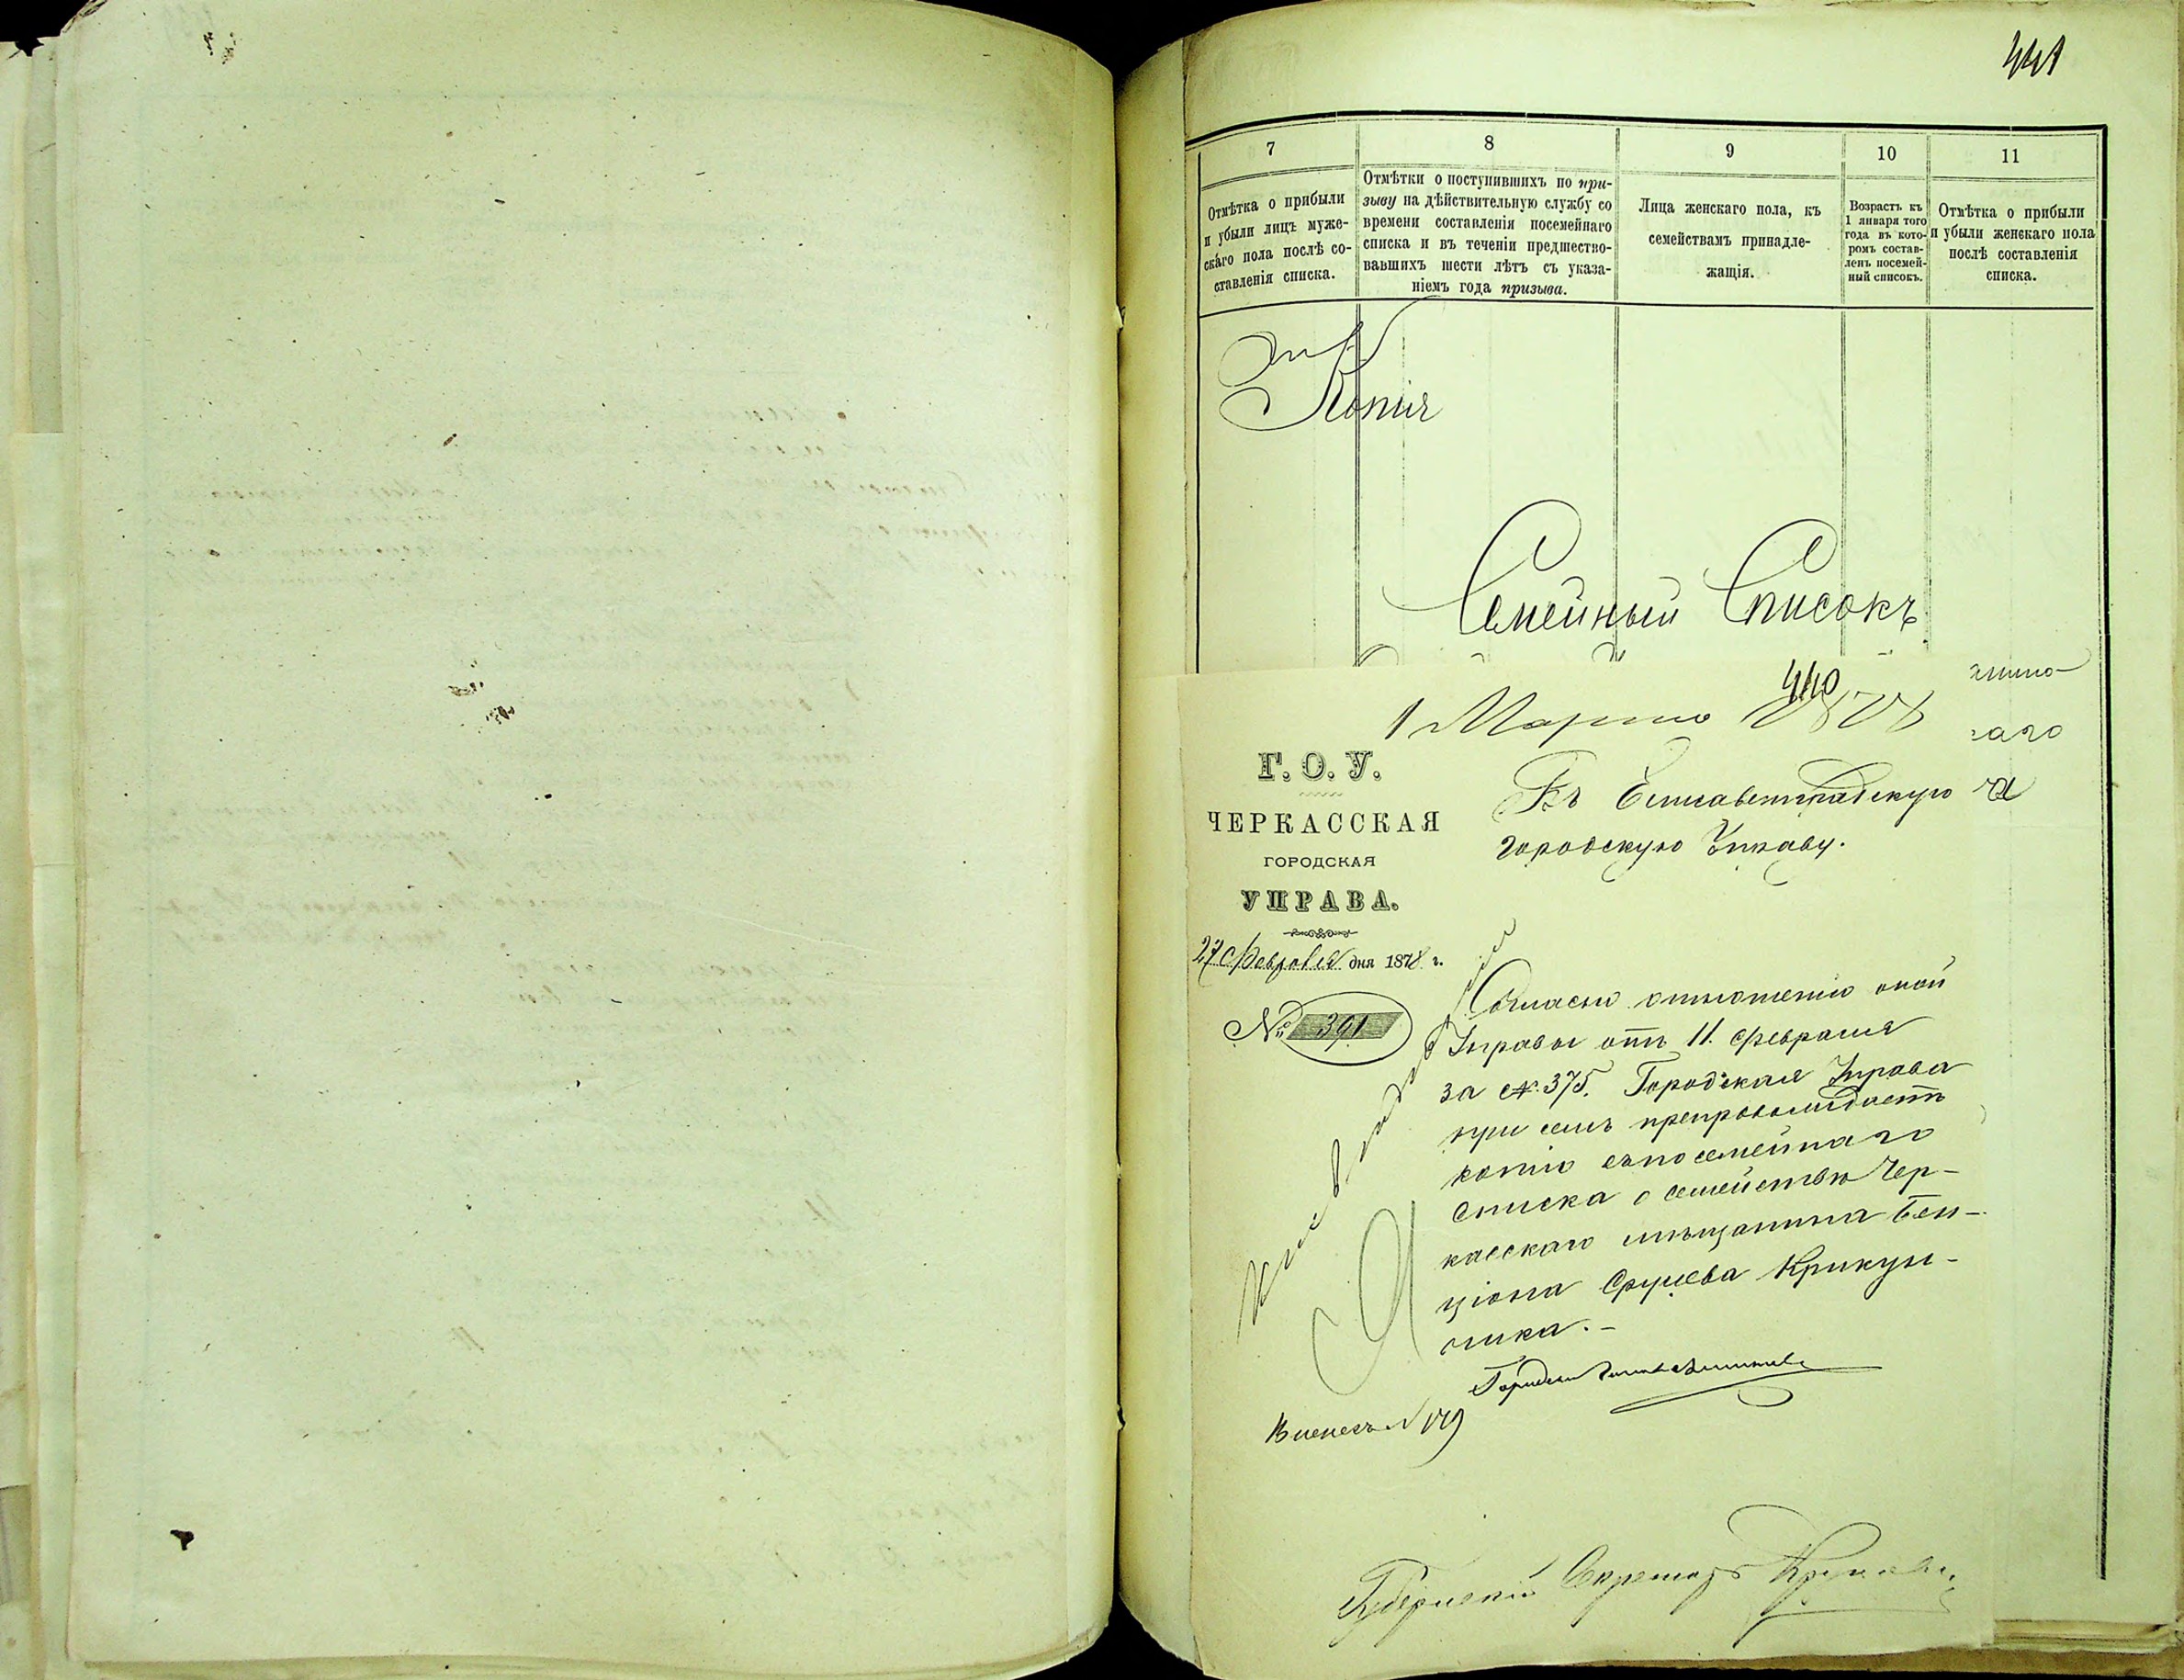 441
7 8 9 10 11
Отмѣтка о прибыли
и убыли лицъ муже-
скаго пола послѣ со-
ставленія списка.
Отмѣтки о поступившихъ по при-
зыву на дѣйствительную службу со
времени составленія посемейнаго
списка и въ теченіи предшество-
вавшихъ шести лѣтъ съ указа-
ніемъ года призыва.
Лица женскаго пола, къ
семействамъ принадле-
жащія.
Возрастъ къ
1 января того
года въ кото-
ромъ состав-
ленъ посемей-
ный списокъ.
Отмѣтка о прибыли
и убыли женскаго пола
послѣ составленія
списка.
Копія
Семейный Списокъ
440
1 Марта 1878
Г. О. У.
ЧЕРКАССКАЯ
ГОРОДСКАЯ
УПРАВА.
27 Февраля дня 1878 г.
№ 391
Въ Елисаветградскую
городскую Управу.
Согласно отношенію оной
Управы отъ 11. Февраля
за №. 375. Городская Управа
при семъ препровождаетъ
копію съ посемейнаго
списка о семействѣ Чер-
касскаго мѣщанина Бен-
ціона Срулева Крикун-
чика.-
Городской Голова
Губернскій Секретарь